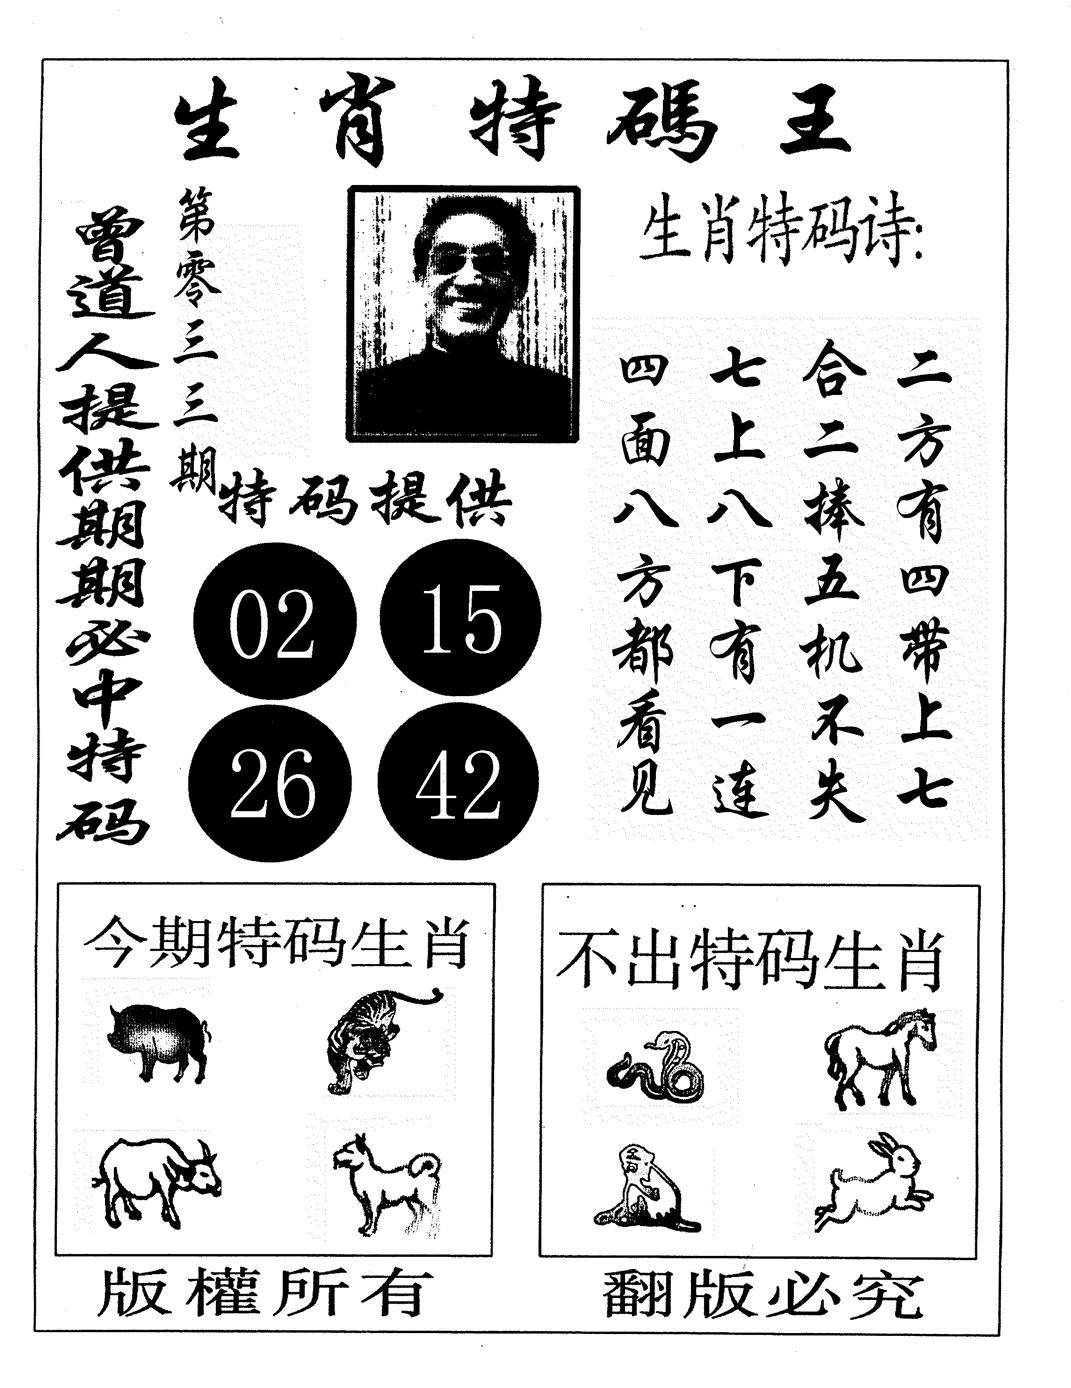 生肖特碼王
曾道人提供期期必中特码
第零三三期
生肖特码诗:
二方有四带上七
合二捧五机不失
七上八下有一连
四面八方都看见
特码提供
02 15
26 42
今期特码生肖
不出特码生肖
版權所有
翻版必究